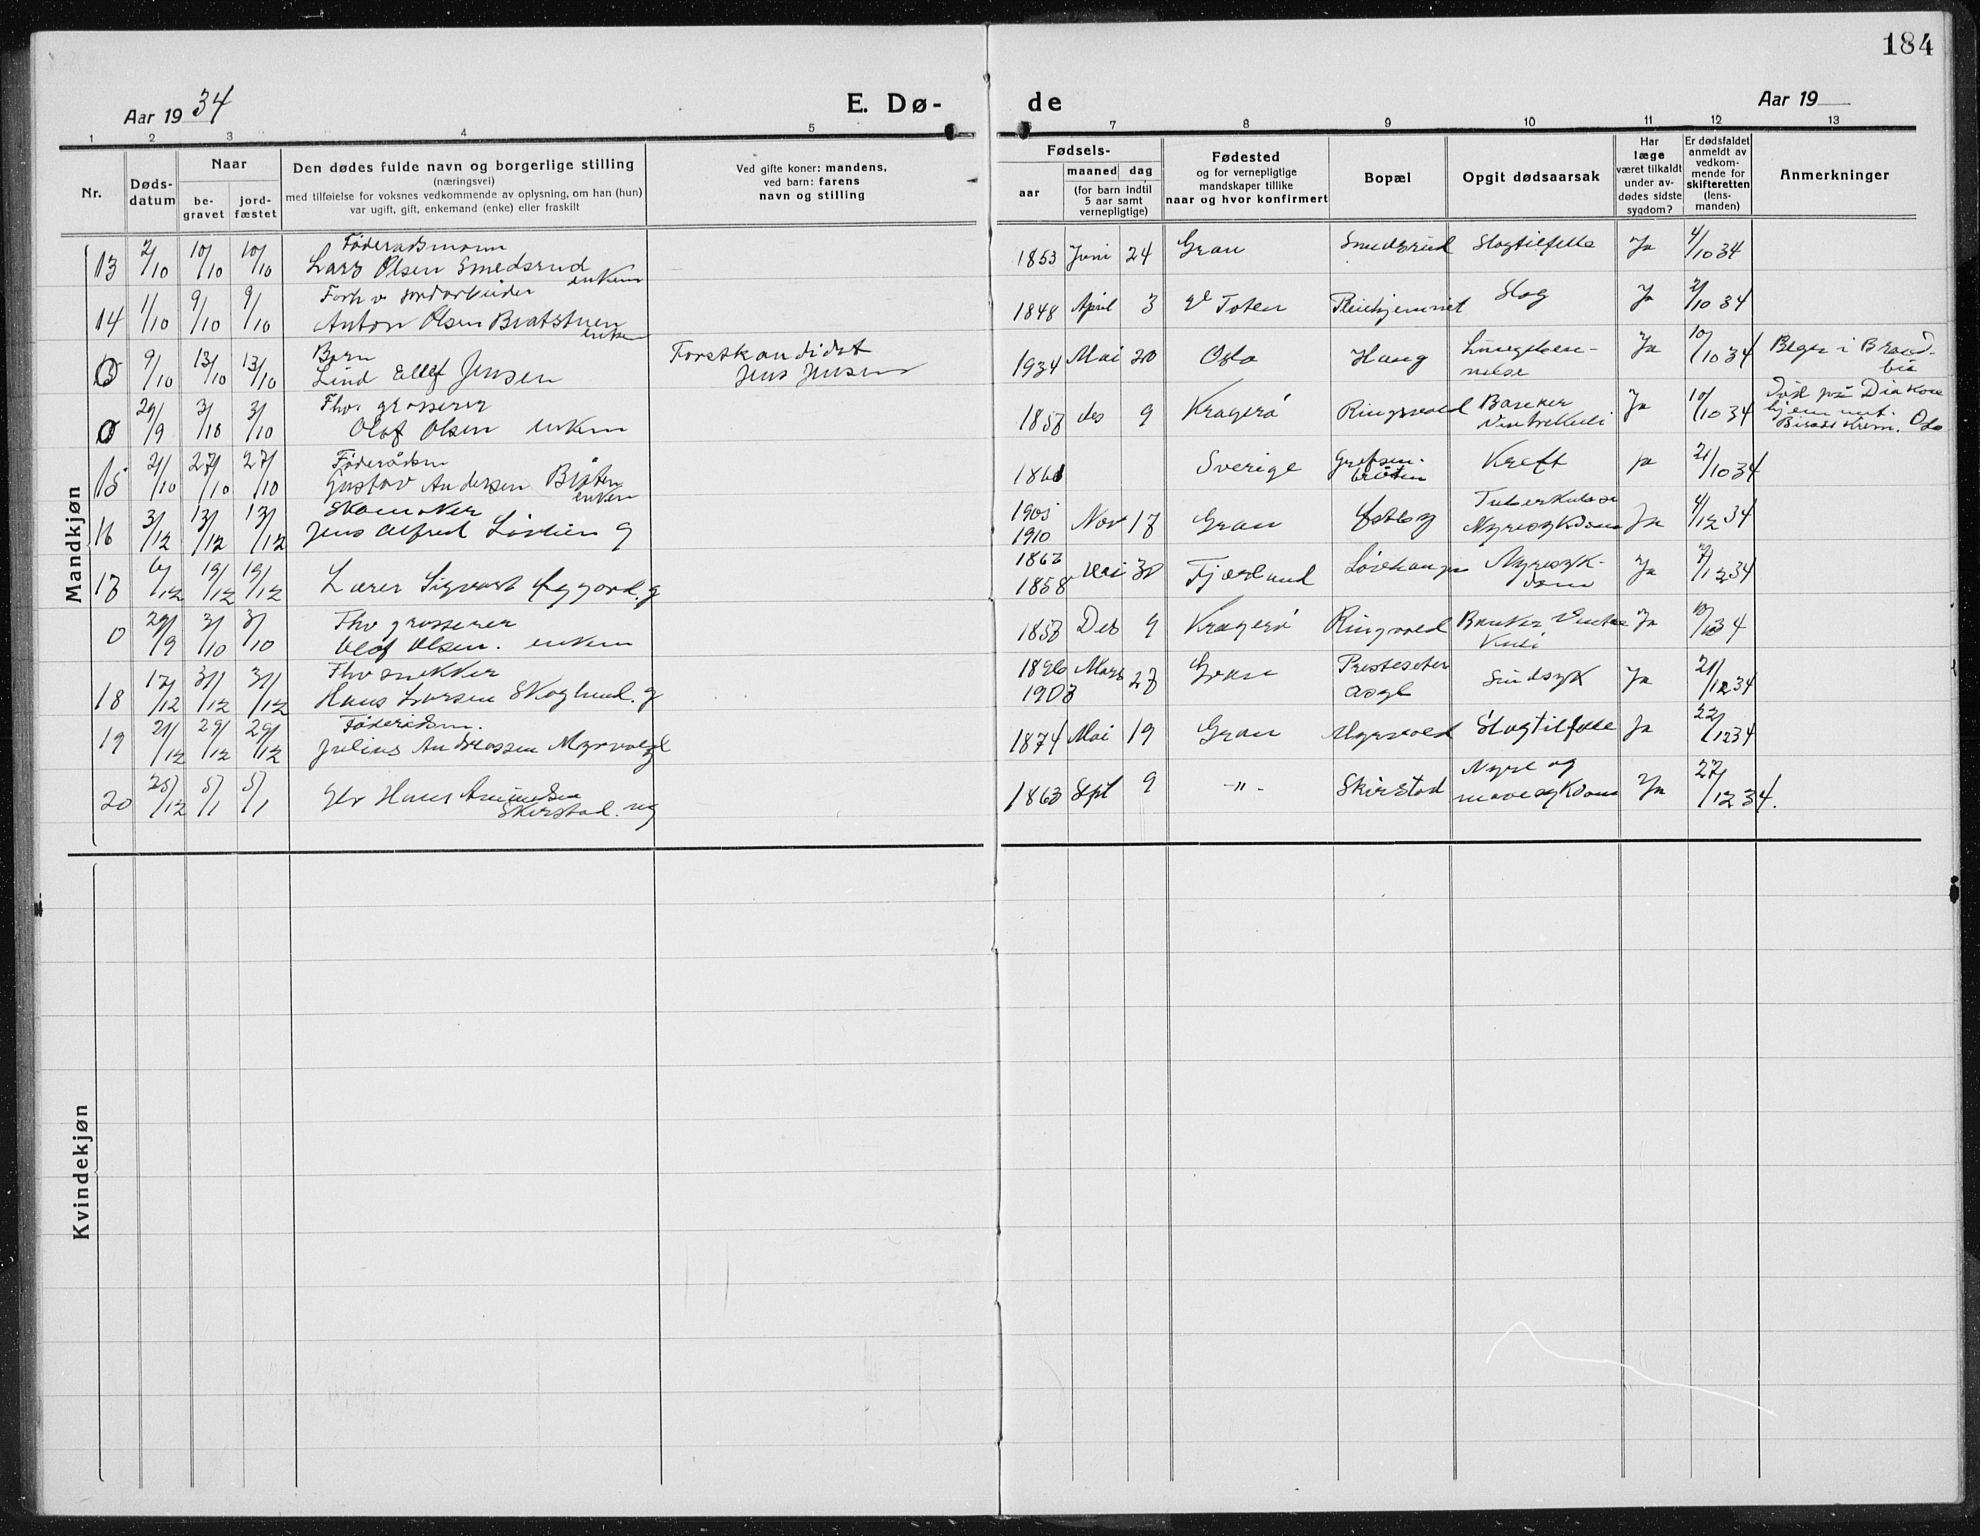 184
Aar 1934
E. Dø-
de
Aar 19
1 2 3 4 5 7 8 9 10 11 12 13
Nr.
Døds-
datum
Naar
be-
gravet
jord-
fæstet
Den dødes fulde navn og borgerlige stilling
(næringsvei)
med tilføielse for voksnes vedkommende av oplysning, om han (hun)
var ugift, gift, enkemand (enke) eller fraskilt
Ved gifte koner: mandens,
ved barn: farens
navn og stilling
Fødsels-
aar
maaned dag
(for barn indtil
5 aar samt
vernepligtige)
Fødested
og for vernepligtige
mandskaper tillike
naar og hvor konfirmert
Bopæl
Opgit dødsaarsak
Har
læge
været tilkaldt
under av-
dødes sidste
sygdom?
Er dødsfaldet
anmeldt av
vedkom-
mende for
skifteretten
(lens-
manden)
Anmerkninger
Mandkjøn
Føderadsmann
13 2/10 10/10 10/10 Lars Olsen Smedsrud enkem 1853 Juni 24 Gran Smedsrud Slagtilfelle Ja 4/10 34
Forh v jordarbeider
14 1/10 9/10 9/10 Anton Olsen Bratstuen enkem 1848 April 3 V Toten Pleiehjemmet Slag Ja 2/10 34
Barn
0 9/10 13/10 13/10 Lind Ellef Jensen Forstkandidat Jens Jensen 1934 Mai 20 Oslo Haug Lungebetennelse Ja 10/10 34 Beger i Brandbu
Fhv. grosserer
0 29/9 3/10 3/10 Olaf Olsen enkem 1857 des 9 Kragerø Ringsvold Ja 10/10 34 Død på Diakonhjemmet. Oslo
Føderådsm
15 21/10 27/10 27/10 Gustav Andersen Bråten enkem 1861 Sverige Grefsenbråten Kreft ja 21/10 34
Skomaker
16 3/12 13/12 13/12 Jens Alfred Løvlien g 1905 1910 Nov 17 Gran Tuberkulose Nyresykdom Ja 4/12 34
17 6/12 19/12 19/12 Lærer Sigvart Øygard. g 1863 1858 Mai 30 Fjærland Løvehaugen Nyresykdom Ja 7/12 34
Fhv grosserer
0 29/9 3/10 3/10 Olaf Olsen. enkem 1857 Des 9 Kragerø Ringvold Ja 10/10 34
Fhv snekker
18 17/12 31/12 31/12 Hans Larsen Skoglund. g 1826 1903 Mars 27 Gran Presteseter asyl Sindsyk Ja 21/12 34
Føderådsm.
19 21/12 29/12 29/12 Julius Andreassen Myrvold 1874 Mai 19 Gran Myrvold Slagtilfelle Ja 22/12 34
20 25/12 5/1 5/1 Hans Amundsen Skirstad. ug 1863 Sept 9 -"- Skirstad Nyre og mavesykdom Ja 27/12 34.
Kvindekjøn